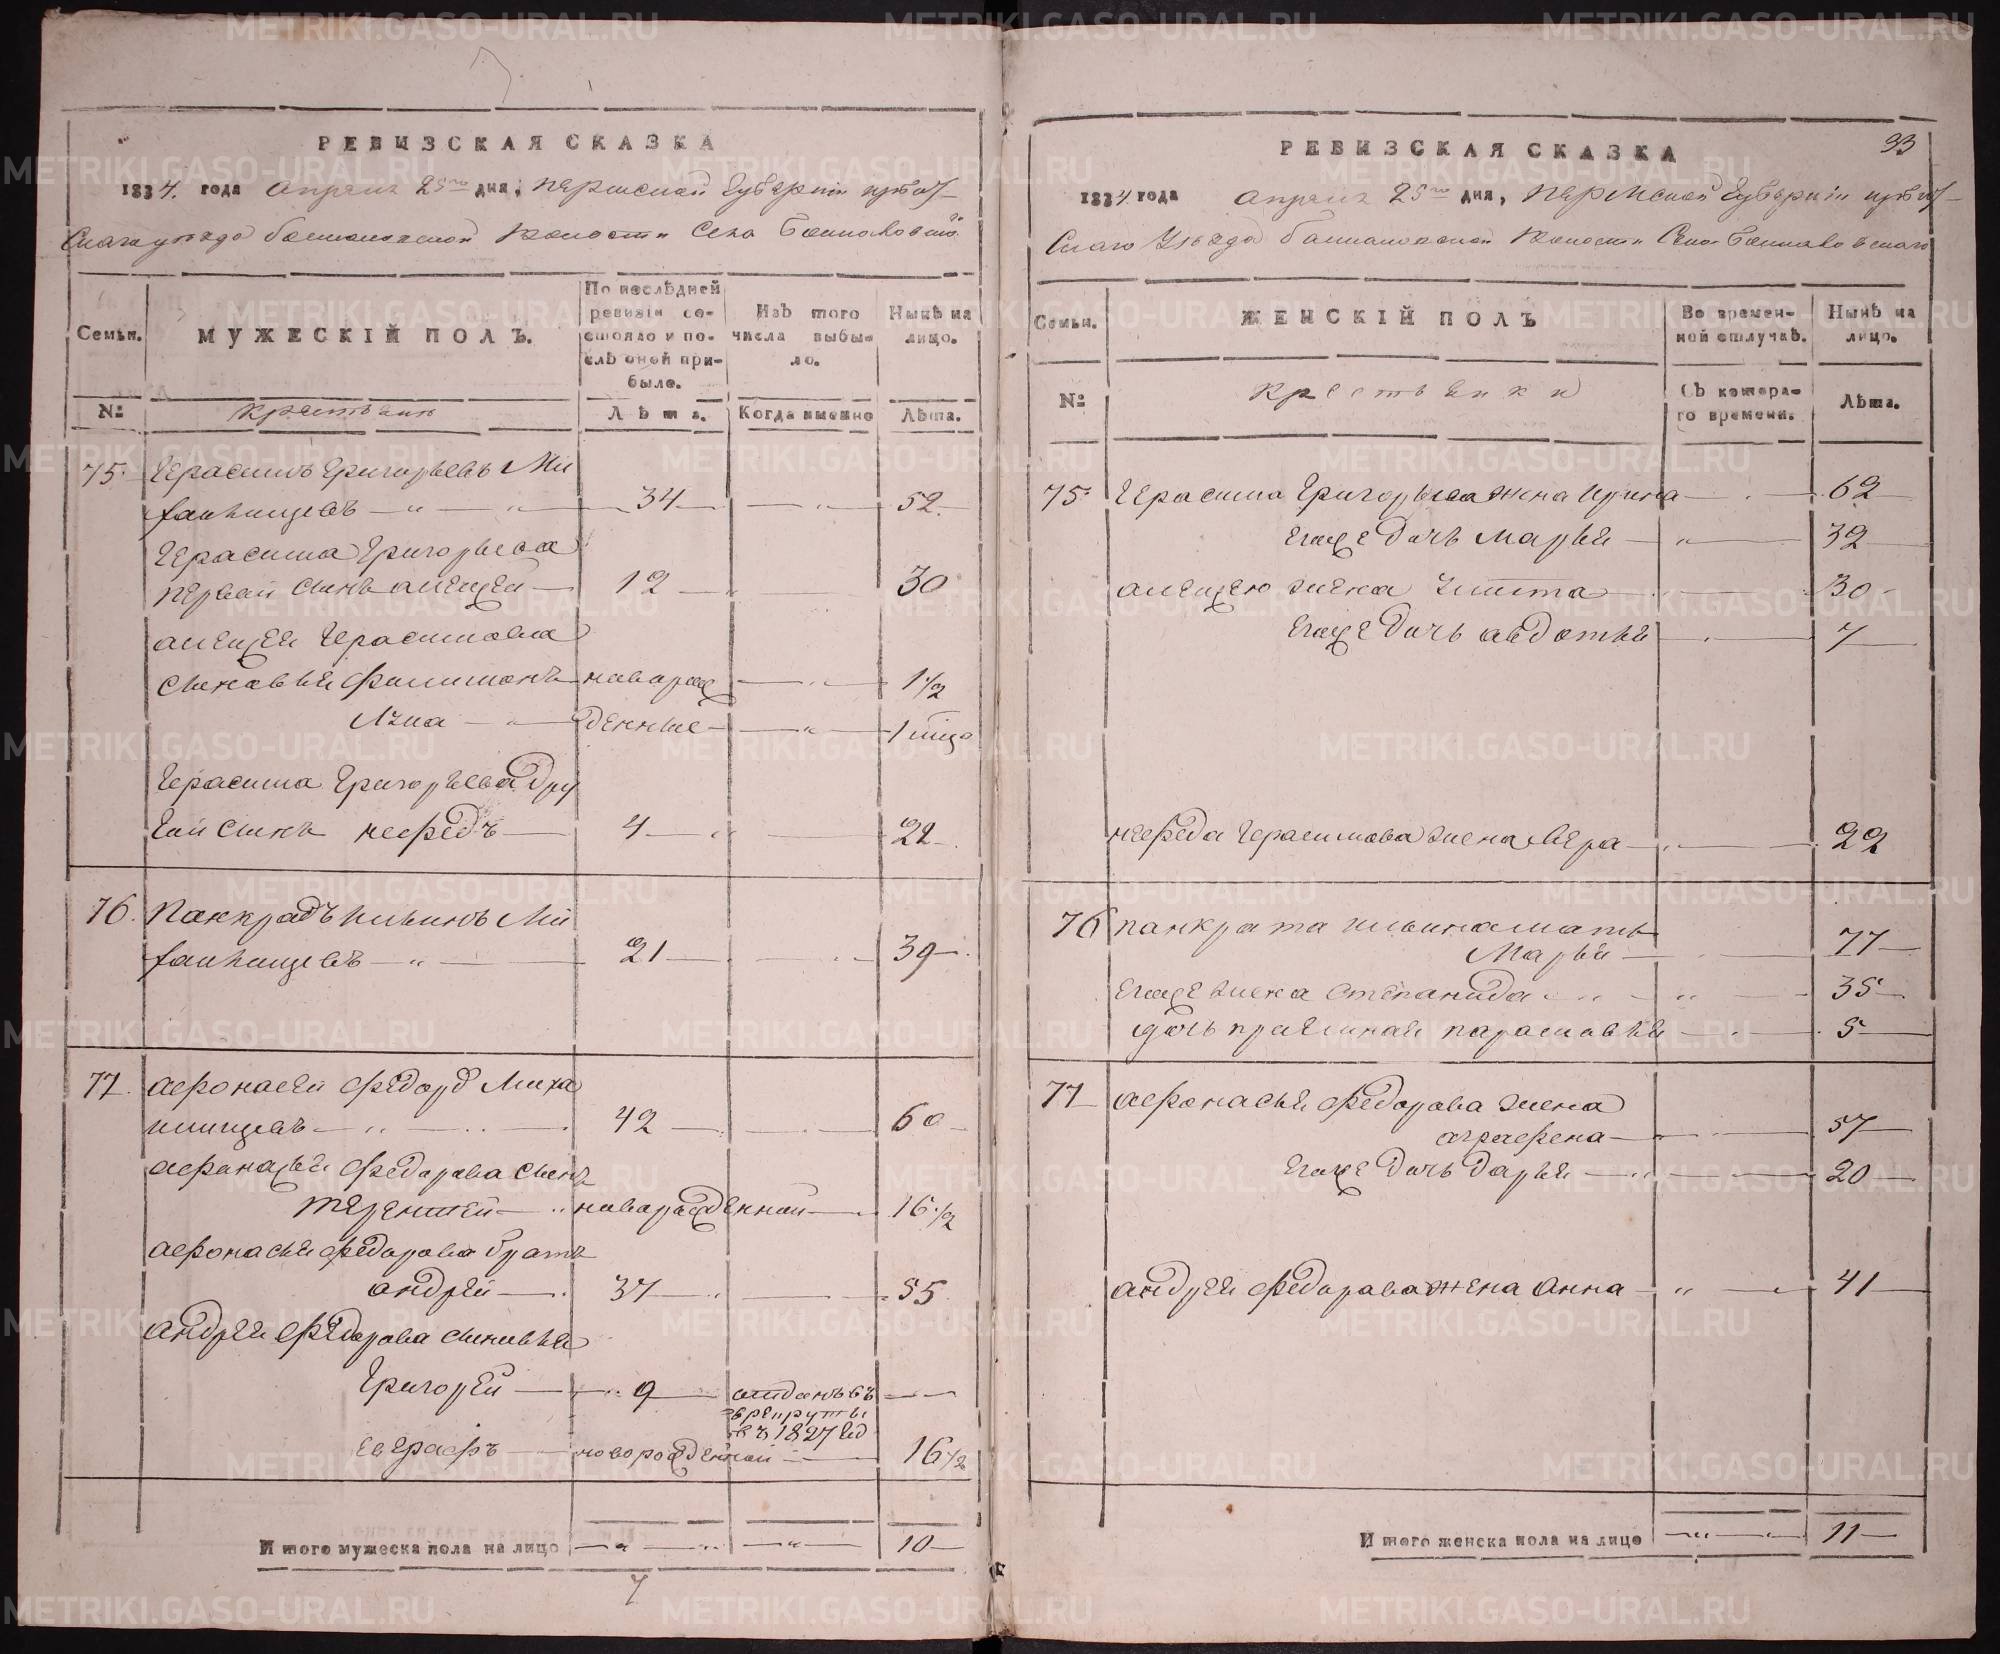 РЕВИЗСКАЯ СКАЗКА
1834. года апреля 25го дня, пермской губернии ирбит-
скаго уезда башмаковской волости Села Башмаковского
Семьи.
МУЖЕСКІЙ ПОЛЪ.
По послѣдней ревизіи состояло и послѣ оной прибыло.
Изъ того числа выбыло.
Нынѣ на лицо.
№
крестьяне
Лѣта.
Когда именно
Лѣта.
75. Герасимъ Григорьевъ Ми
хаинщевъ 34 52
Герасима Григорьева
первай сынъ алещеи 12 30
алещеи Герасимова
сыновьеи Филимонъ новораж 1 1/2
денные
Герасима Григорьева дру
гой сынъ нефедъ 4 22
76. Панкрадъ ильинъ Ми
21 39
77. афонасеи федоро Миха
42 60
афонасьи федорова сынъ
терентеи новорожденнои 16 1/2
афонасьи федорова братъ
андреи 37 55
андреи федорова сыновьеи
Григореи 9 отданъ въ
рекруты
въ 1827 год
евграфъ новорожденнои 16 1/2
Итого мужеска пола на лицо 10
7
РЕВИЗСКАЯ СКАЗКА 33
1834 года апреля 25го дня, пермской губернии ирбит-
скаго уезда башмаковской волости Села Башмаковскаго
Семьи.
ЖЕНСКІЙ ПОЛЪ
Во временной отлучкѣ.
Нынѣ на лицо.
№
крестьянки
Съ котораго времени.
Лѣта.
75. Герасима Григорьева жена Ирина 62
егоже дочь марьи 32
алещею жена 30
егоже дочь авдотьи 7
нефеда Герасимова жена Вера 22
76 панкрата ильина мать
Марьи 77
егоже жена степанида 35
дочь приемнаи парасковьи 5
77 афонасьи федорова жена
аграфена 57
егоже дочь дарьи 20
андреи федорова жена анна 41
Итого женска пола на лицо 11
METRIKI.GASO-URAL.RU